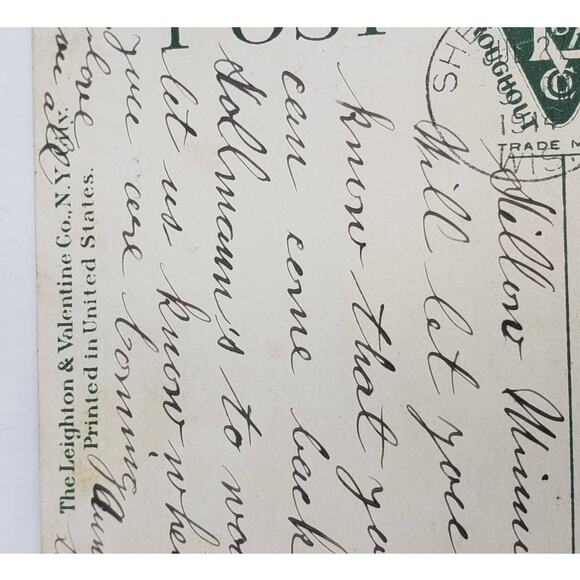 POST
Hillow Minn
Will let you
know that yo
can come back
Hollmann's to wo
let us know whe
you are Coming
love
you all
The Leighton & Valentine Co., N.Y. City.
Printed in United States.
TRADE M
1914
WIS
SHE